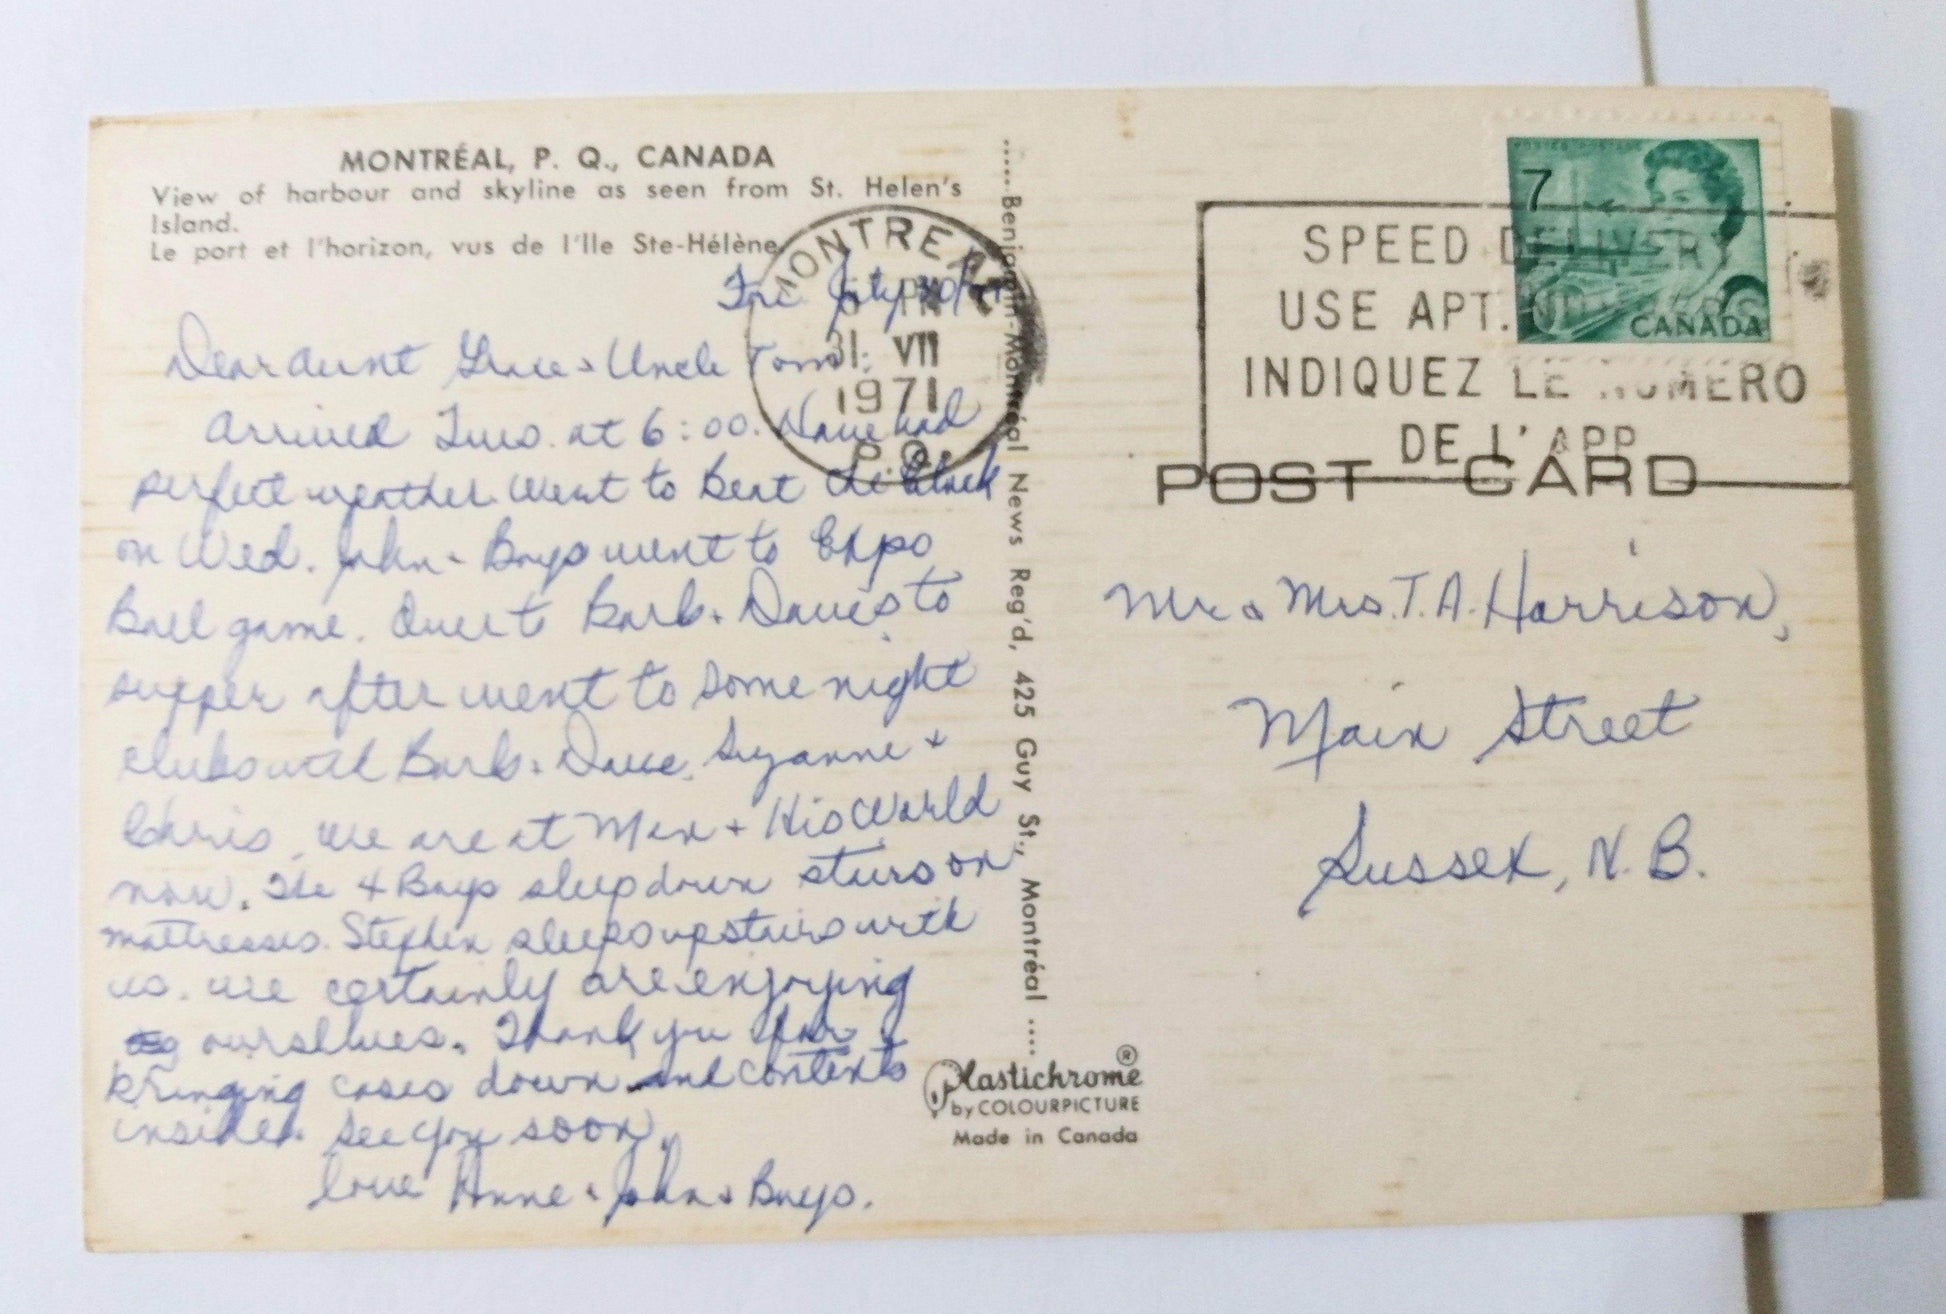 MONTRÉAL, P. Q., CANADA
View of harbour and skyline as seen from St. Helen's
Island.
Le port et l'horizon, vus de l'Ile Ste-Hélène
Fri. July 30/71
Dear Aunt Grace & Uncle Tom:
Arrived Tues. at 6:00. Have had
perfect weather. Went to Beat the Clock
on Wed. John & Boys went to Expo
Ball game. Over to Barb & Dave's to
supper after went to some night
clubs with Barb & Dave, Suzanne &
Chris. We are at Man & His World
now. The 4 Boys sleep down stairs on
mattresses. Stephen sleeps upstairs with
us. We certainly are enjoying
ourselves. Thank you for
bringing cases down and contents
inside. See you soon,
Love Anne & John & Boys.
Benjamin-Montréal News Reg'd, 425 Guy St., Montréal
Plastichrome ®
by COLOURPICTURE
Made in Canada
MONTREAL
PM
31 VII
1971
P.Q.
SPEED DELIVERY
USE APT. NUMBERS
INDIQUEZ LE NUMERO
DE L'APP
7
CANADA
POST CARD
Mr & Mrs. T. A. Harrison,
Main Street
Sussex, N. B.